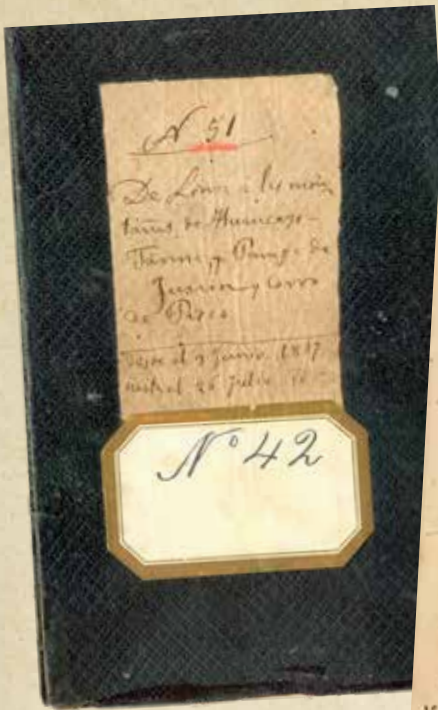 N 51
De Lima a las mon
tañas de Huancayo -
Tarma, y Pampa de
Junin y Cerro
de Pasco
Desde el 9 Junio 18
hasta el 26 Julio
Nº 42